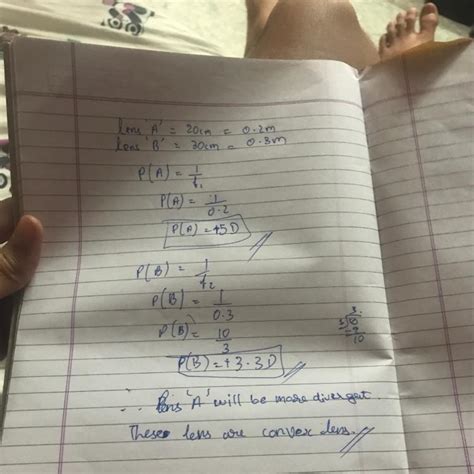 lens 'A' = 20cm = 0.2m
lens 'B' = 30cm = 0.3m
P(A) = 1/f₂
P(A) = 1/0.2
P(A) = +5 D
P(B) = 1/f₂
P(B) = 1/0.3
P(B) = 10/3
P(B) = +3.3 D
∴ lens 'A' will be more divergent.
These lens are convex lens.